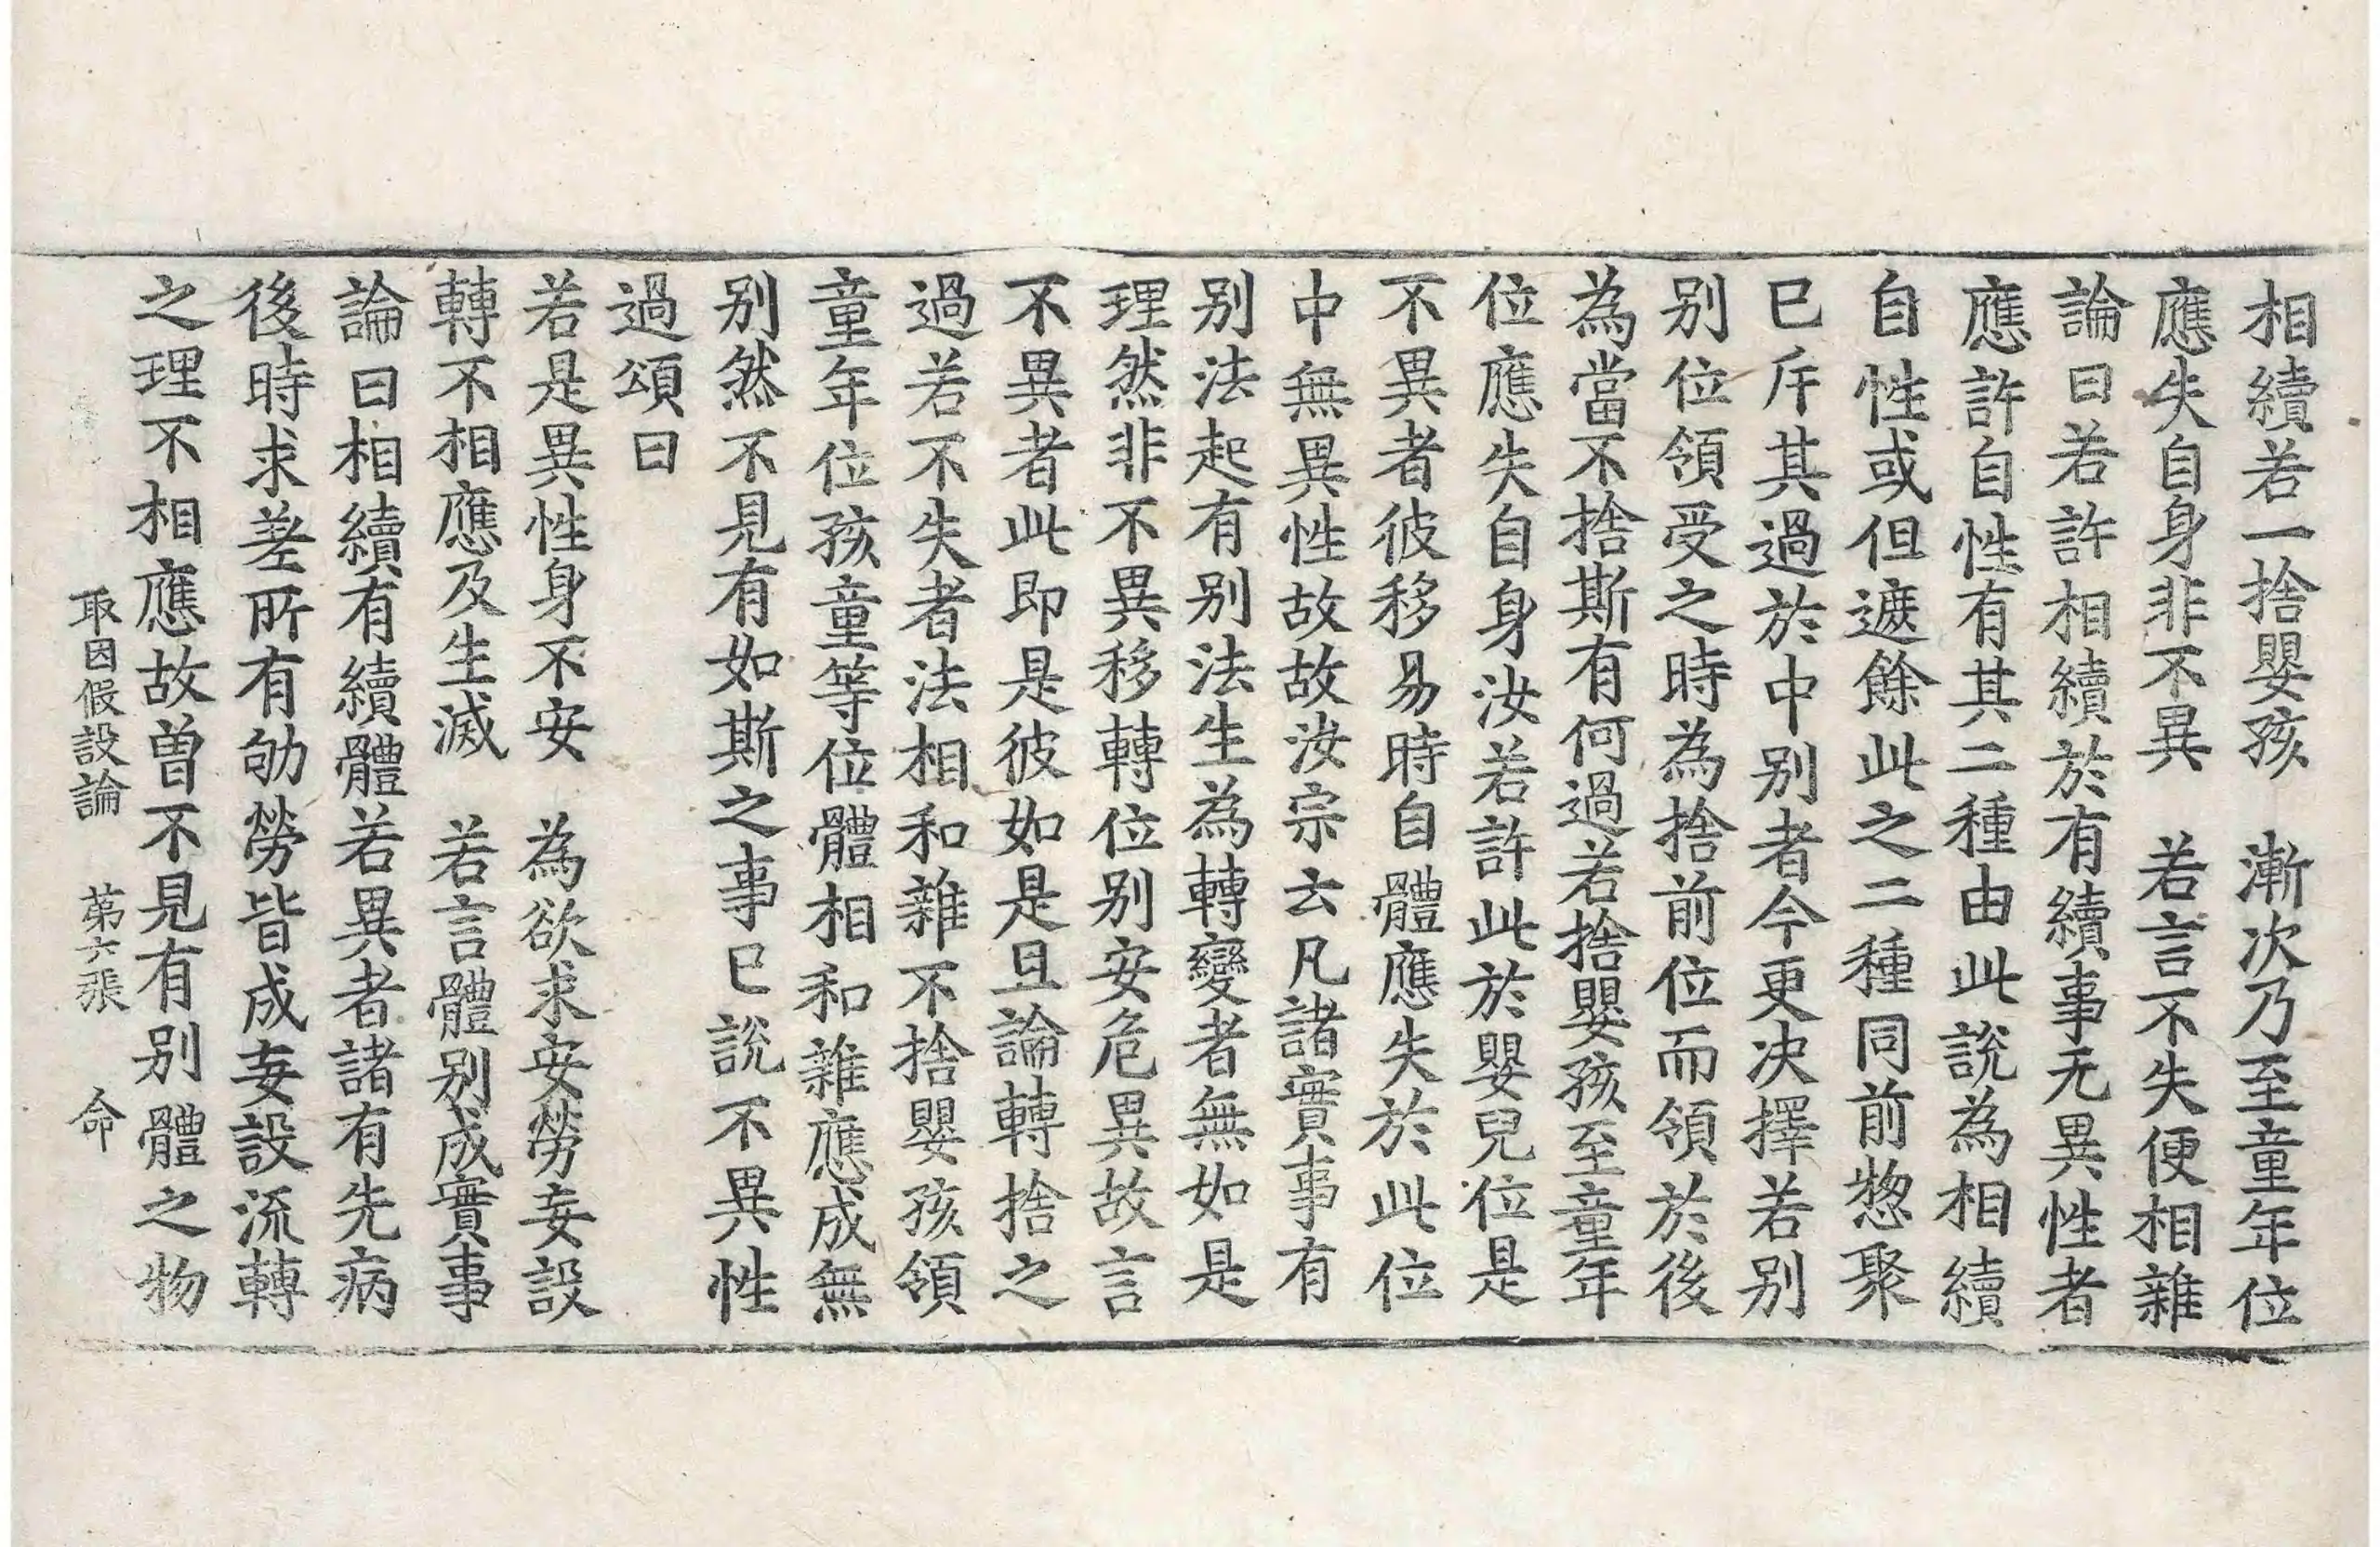 相續若一捨嬰孩　漸次乃至童年位
應失自身非不異　若言不失便相雜
論曰若許相續於有續事无異性者
應許自性有其二種由此說為相續
自性或但遮餘此之二種同前惣聚
已斥其過於中別者今更决擇若別
別位領受之時為捨前位而領於後
為當不捨斯有何過若捨嬰孩至童年
位應失自身汝若許此於嬰兒位是
不異者彼移易時自體應失於此位
中無異性故故汝宗云凡諸實事有
別法起有別法生為轉變者無如是
理然非不異移轉位別安危異故言
不異者此即是彼如是且論轉捨之
過若不失者法相和雜不捨嬰孩領
童年位孩童等位體相和雜應成無
別然不見有如斯之事已說不異性
過頌曰
若是異性身不安　為欲求安勞妄設
轉不相應及生滅　若言體別成實事
論曰相續有續體若異者諸有先病
後時求差所有劬勞皆成妄設流轉
之理不相應故曾不見有別體之物
取因假設論　第六張　命